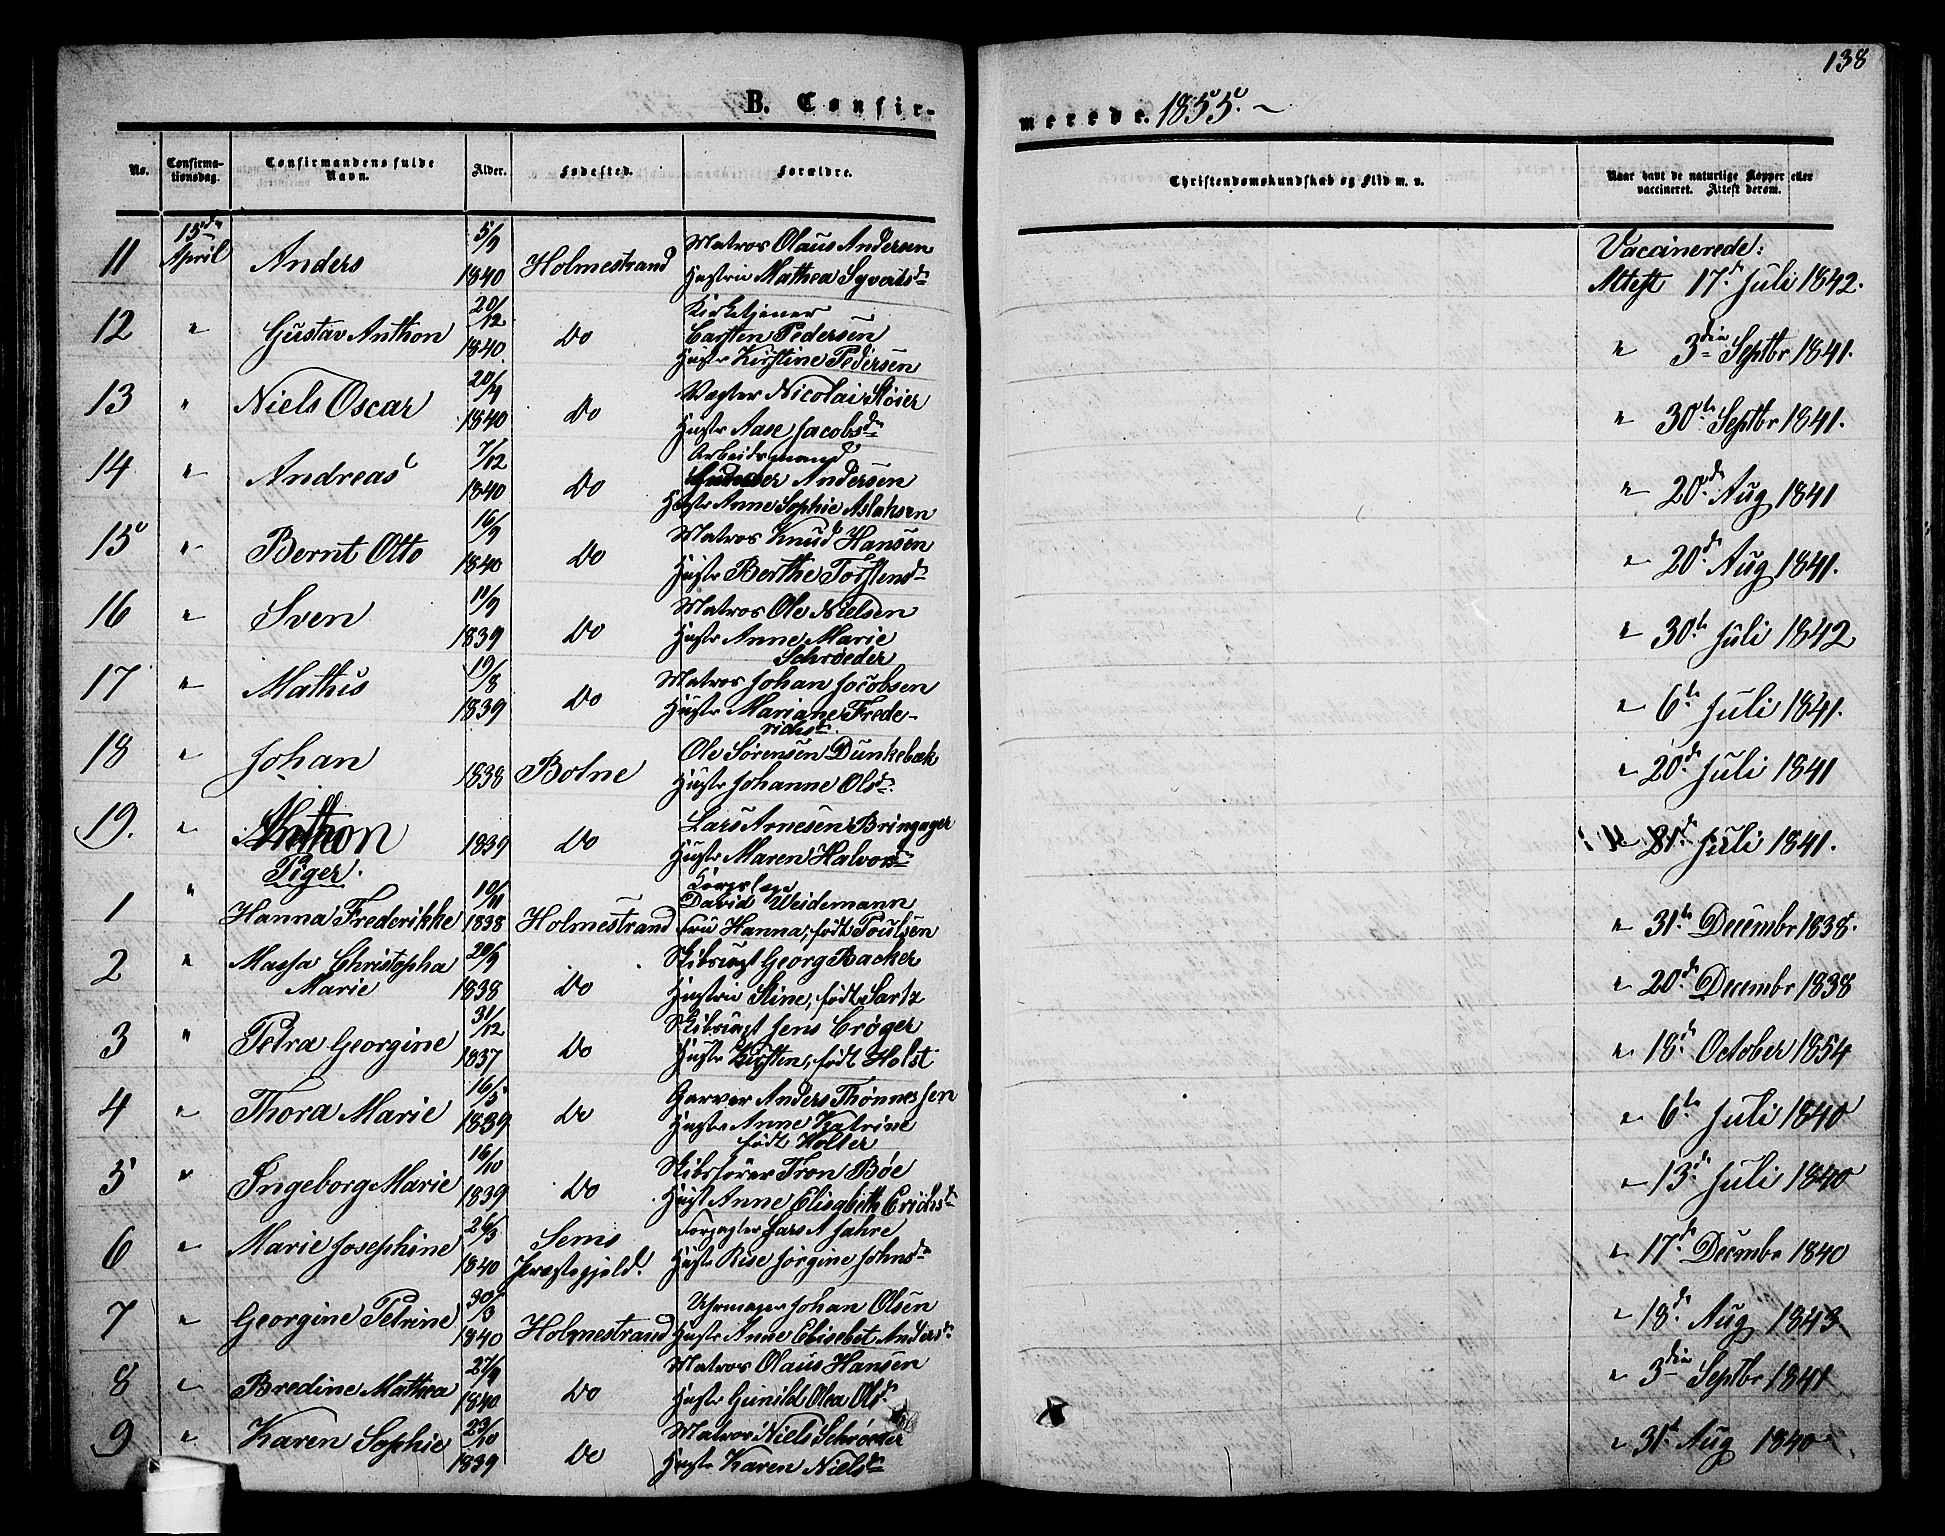 138
B. Confirmerede. 1855.
No.
Confirmationsdag.
Confirmandens fulde Navn.
Alder.
Fødested.
Forældre.
Christendomskundskab og Flid m. v.
Naar havt de naturlige Kopper eller vaccineret. Attest derom.
11 15de April Anders 5/9 1840 Holmestrand Matros Olaus Andersen
Hustru Mathea Syvertsd.
Vaccinerede:
Attest 17d. Juli 1842.
12 " Gustav Anthon 20/12 1840. Do Kirketjener
Carsten Pedersen
Hustr Kirstine Pedersen
" 3die Septbr 1841.
13 " Niels Oscar 20/4 1840 Do Vægter Nicolai Støier
Hustr Aase Jacobsd.
" 30te Septbr 1841.
14 " Andreas 7/12 1840 Do Arbeidsmand
Andersen
Hustr Anne Sophie Aslaksen
" 20d. Aug 1841
15 " Bernt Otto 16/9 1840 Do Matros Knud Hansen
Hustr Berthe Torstensd.
" 20d. Aug 1841.
16 " Sven 11/9 1839 Do Matros Ole Nielsen
Hustr Anne Marie
Schrøeder
" 30te Juli 1842
17 " Mathis 19/8 1839 Do Matros Johan Jocobsen
Hustr Mariane Frede-
riksd.
" 6te Juli 1841.
18 " Johan 1838 Botne Ole Sørensen Dunkebæk
Hustr Johanne Olsd.
" 20d. Juli 1841
19. " Anthon 1839 Do Lars Arnesen Bringager
Hustr Maren Halvorsd.
" 21d. Juli 1841.
Piger.
1 " Hanna Frederikke 10/11 1838 Holmestrand Korpslæge
David Weidemann
Fru Hanna, født Poulsen
" 31te Decembr 1838.
2 " Massa Christopha
Marie 20/9 1838 Do Skibsrugt Georg Backer
Hustru Stine, født Sartz
" 20d. Decembr 1838
3 " Petra Georgine 31/12 1837 Do Skibsrugt Jens Crøger
Hustr Kirsten, født Holst
" 18d. October 1854
4 " Thora Marie 16/5 1839 Do Garver Anders Thønnessen
Hustr Anne Katrine
født Holter
" 6te Juli 1840
5 " Ingeborg Marie 16/10 1839 Do Skibsfører Tron Bøe
Hust Anne Elisabeth Erichsd.
" 13d. Juli 1840
6 " Marie Josephine 26/3 1840 Sems
Præstegjeld. Forpagter Lars A Jahre
Hustr Rise Jørgine Johnsd.
" 17d. Decmbr 1840
7 " Georgine Petrine 30/3 1840 Holmestrand Uhrmager Johan Olsen
Hustr Anne Elisebet Andersd.
" 18d. Aug 1843
8 " Bredine Mathea 27/9 1840 Do Matros Olaus Hansen
Hustr Gunild Olea Olsd.
" 3die Septbr 1841
9 " Karen Sophie 23/10 1839 Do Matros Niels Schrøder
Hustr Karen Nielsd.
" 31te Aug 1840